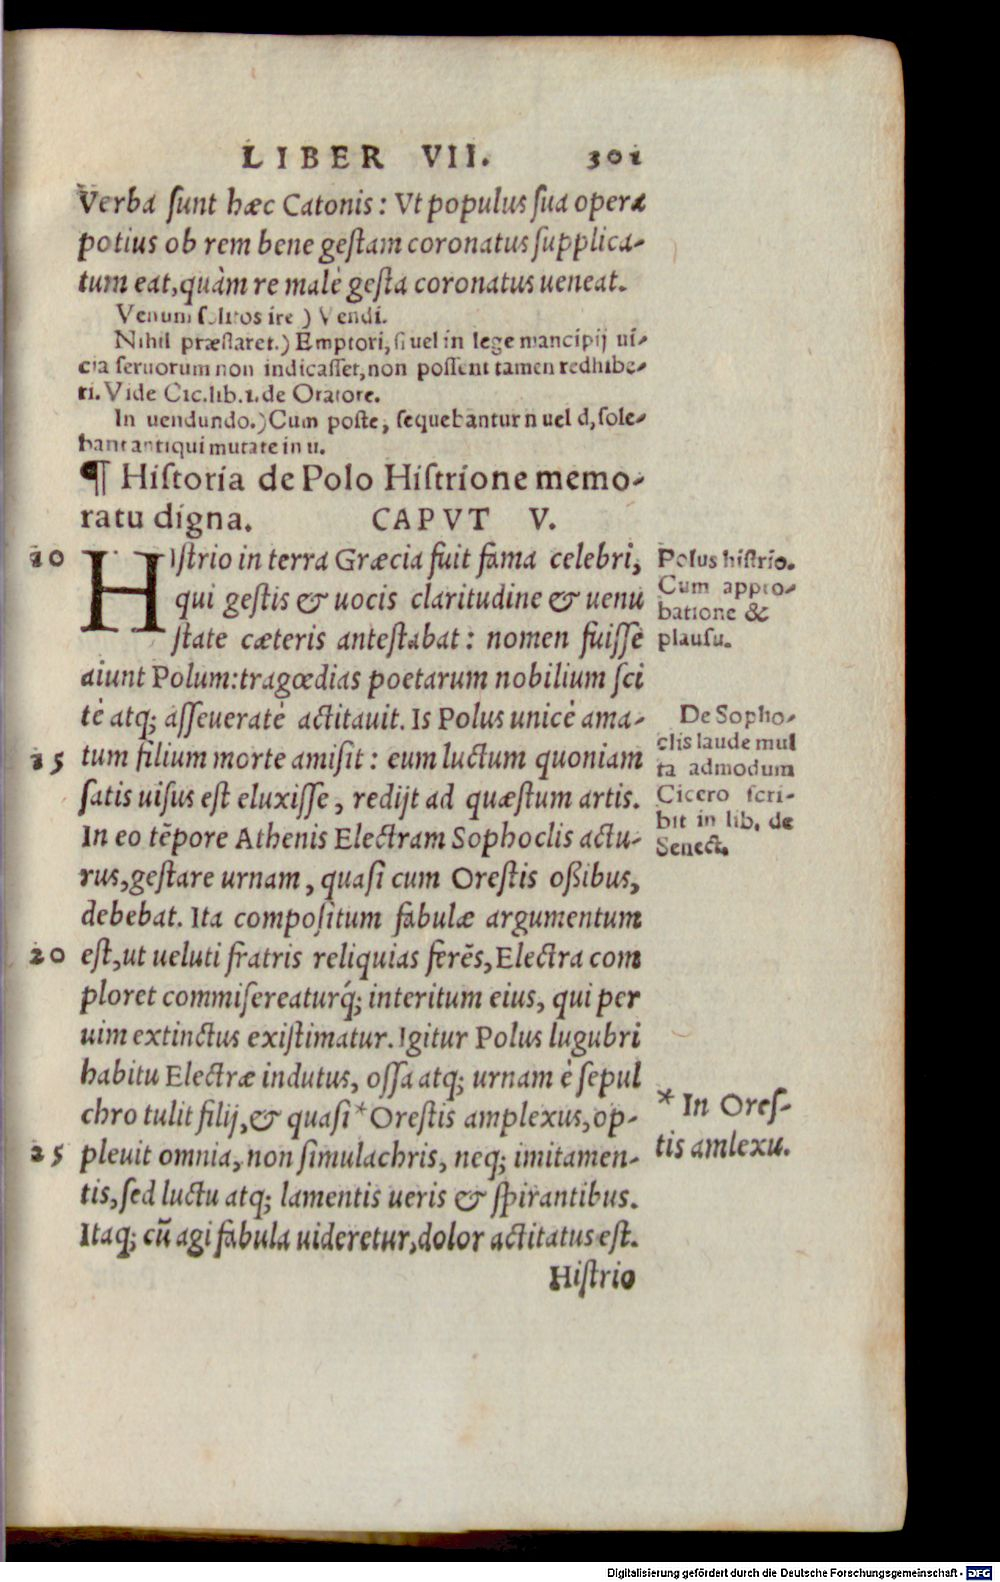 LIBER VII. 301
Verba ſunt hæc Catonis: Vt populus ſua opera
potius ob rem bene geſtam coronatus ſupplica-
tum eat, quàm re malè geſta coronatus ueneat.
Venum ſolitos ire) Vendi.
Nihil præſtaret.) Emptori, ſi uel in lege mancipij ui-
cia ſeruorum non indicaſſet, non poſſent tamen redhibe-
ri. Vide Cic. lib. 1. de Oratore.
In uendundo.) Cum poſte, ſequebantur n uel d, ſole-
bant antiqui mutare in u.
¶ Hiſtoria de Polo Hiſtrione memo-
ratu digna. CAPVT V.
10 HIſtrio in terra Græcia fuit fama celebri,
qui geſtis & uocis claritudine & uenu
ſtate cæteris anteſtabat: nomen fuiſſe
aiunt Polum: tragœdias poetarum nobilium ſci
tè atq; aſſeueratè actitauit. Is Polus unicè ama-
15 tum filium morte amiſit: eum luctum quoniam
ſatis uiſus eſt eluxiſſe, redijt ad quæſtum artis.
In eo tẽpore Athenis Electram Sophoclis actu-
rus, geſtare urnam, quaſi cum Oreſtis oßibus,
debebat. Ita compoſitum fabulæ argumentum
20 eſt, ut ueluti fratris reliquias ferẽs, Electra com
ploret commiſereaturq́; interitum eius, qui per
uim extinctus exiſtimatur. Igitur Polus lugubri
habitu Electræ indutus, oſſa atq; urnam è ſepul
chro tulit filij, & quaſi * Oreſtis amplexus, op-
25 pleuit omnia, non ſimulachris, neq; imitamen-
tis, ſed luctu atq; lamentis ueris & ſpirantibus.
Itaq; cũ agi fabula uideretur, dolor actitatus eſt.
Hiſtrio
Polus hiſtrio.
Cum appro-
batione &
plauſu.
De Sopho-
clis laude mul
ta admodum
Cicero ſcri-
bit in lib. de
Senect.
* In Oreſ-
tis amlexu.
Digitalisierung gefördert durch die Deutsche Forschungsgemeinschaft - DFG